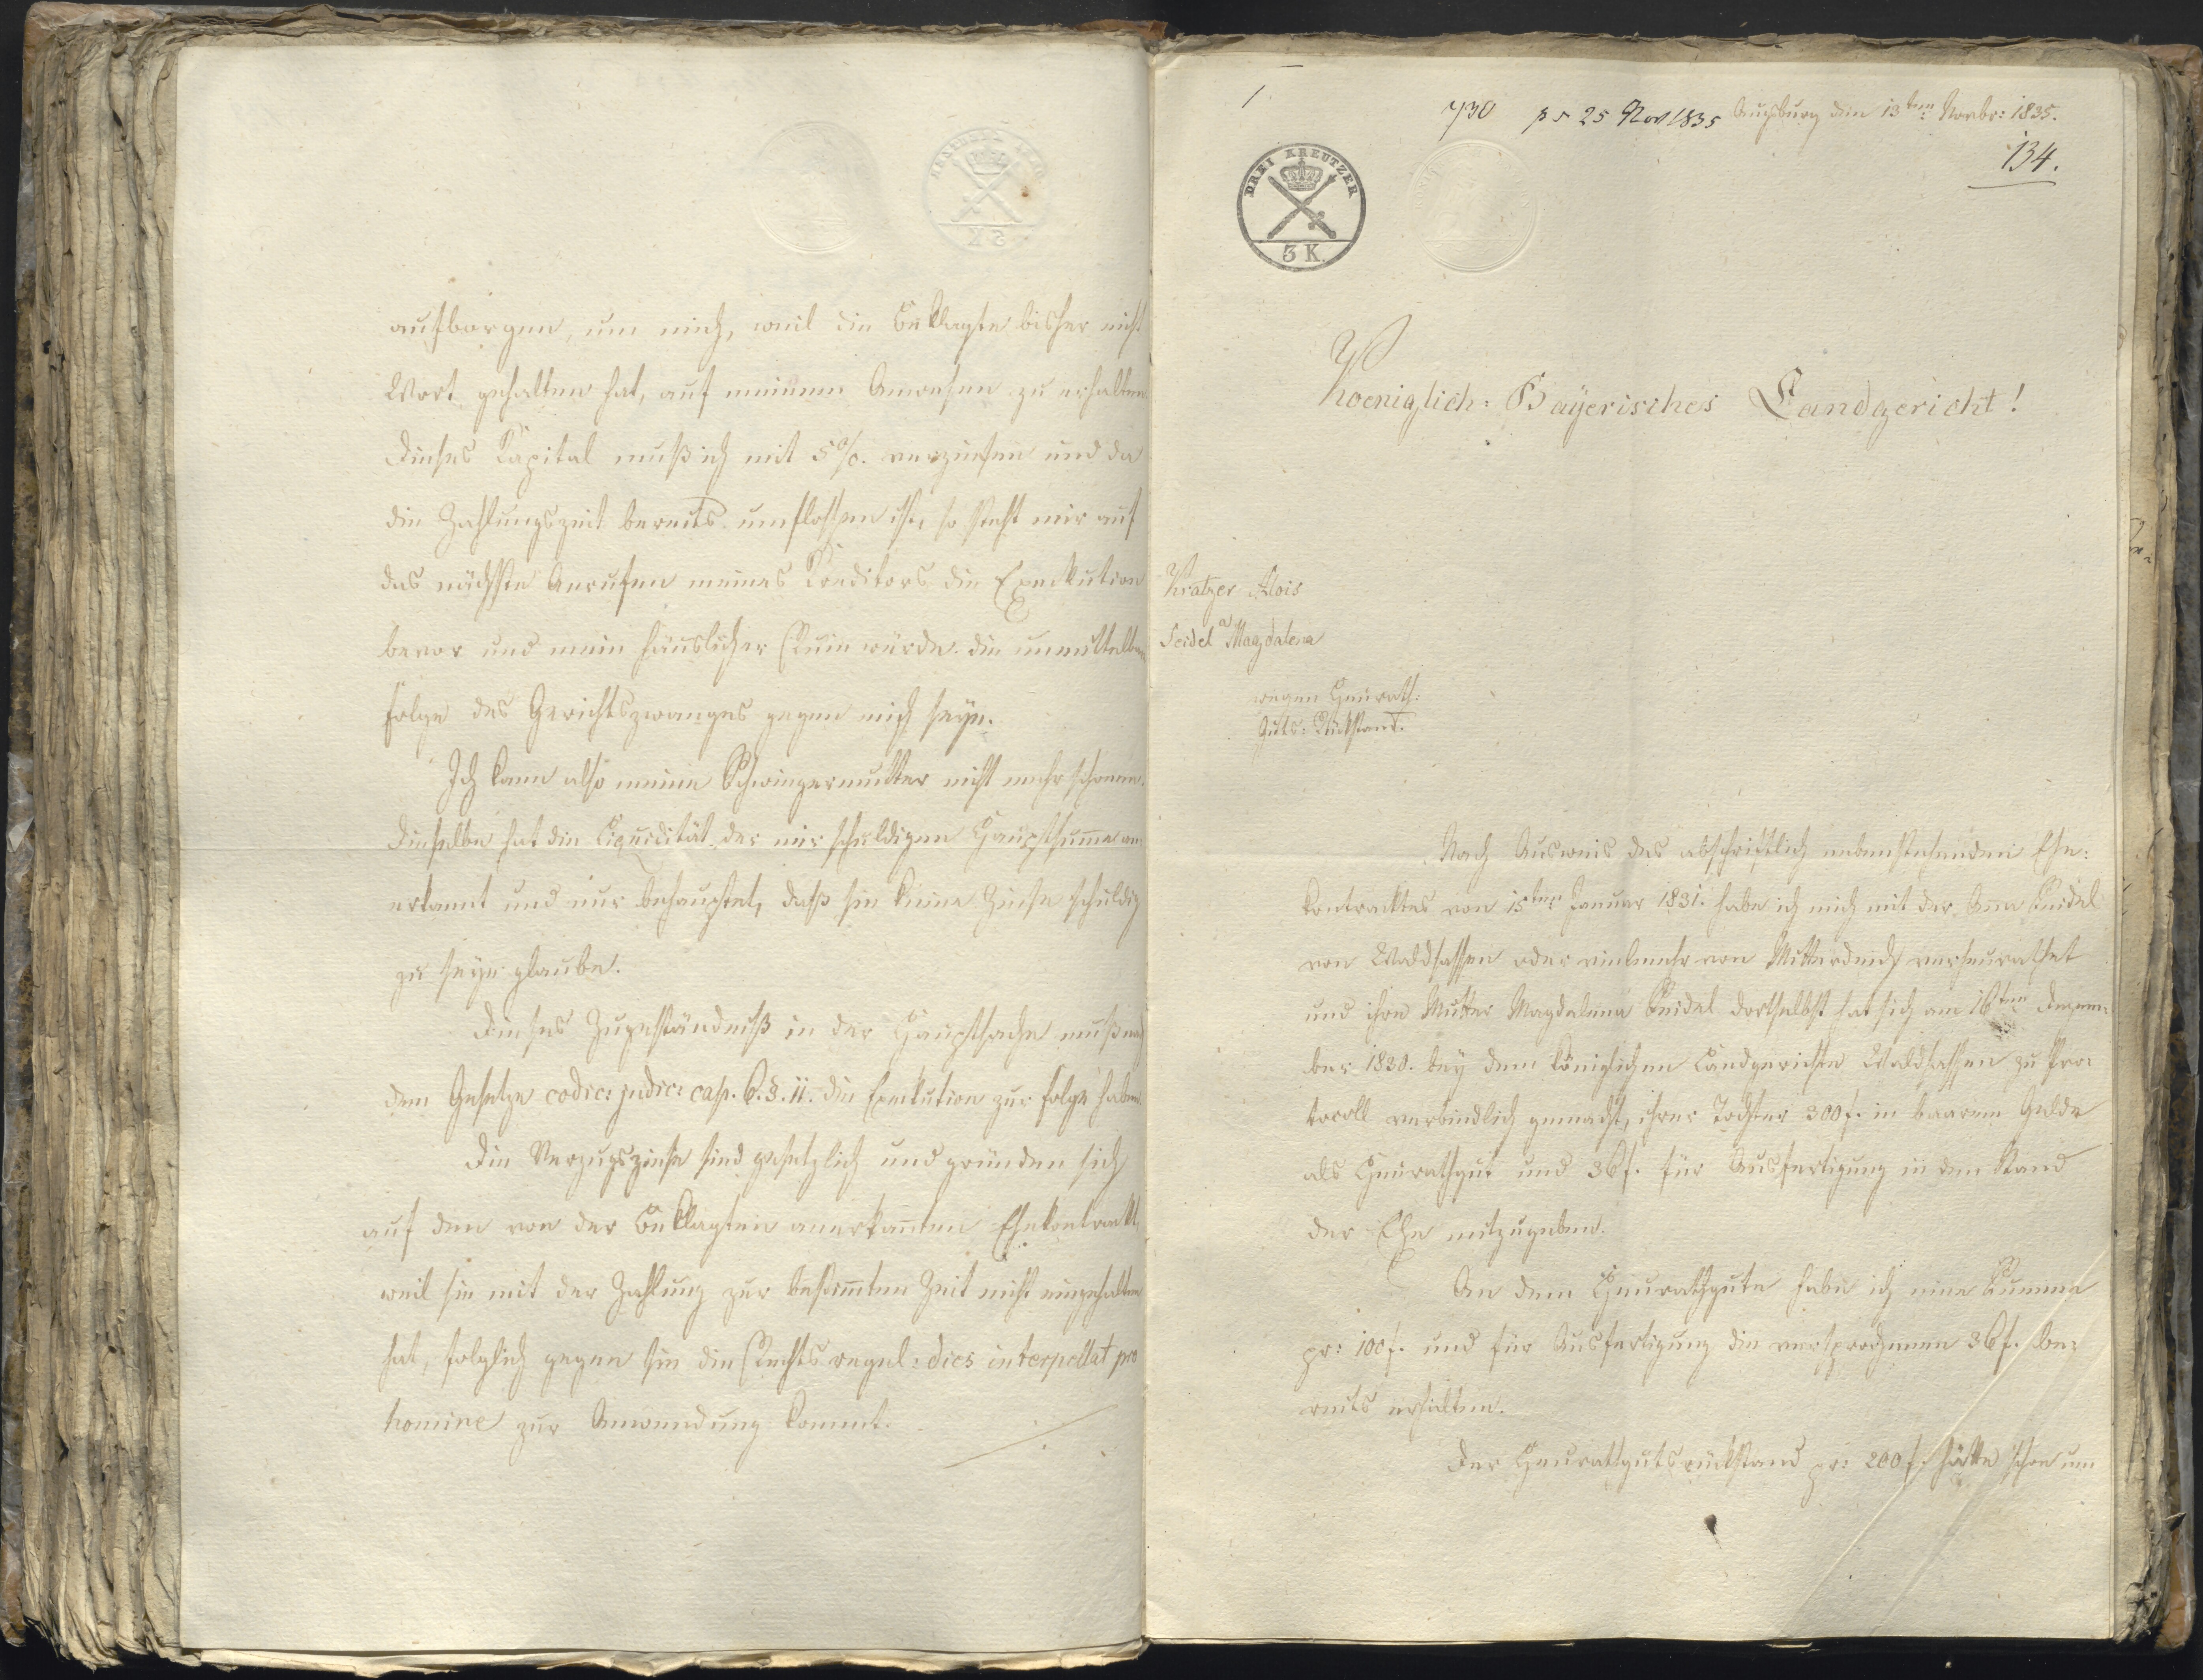 aufborgen, um mich, weil die Beklagte bisher nicht
Wort gehalten hat, auf meinem Anwesen zu erhalten
Dieses Kapital muß ich mit 5%. verzinsen und da
die Zahlungszeit bereits umflossen ist, so steht mir auf
das nächste Anrufen meines Kreditors die Exekution
bevor und mein häuslicher Ruin würde die unmittelbare
Folge des Gerichtszwanges gegen mich seyn.
Ich kann also meine Schwiegermutter nicht mehr schonen.
Dieselbe hat die Liquidität der mir schuldigen Hauptsumme an
erkannt und nur behauptet, daß sie keine Zinse schuldig
zu seyn glaube.
Dieses Zugeständniß in der Hauptsache muß nach
dem Gesetze codic: judic: cap. 6. §. 11. die Exekution zur Folge haben.
Die Verzugszinse sind gesetzlich und gründen sich
auf den von der Beklagten anerkannten Ehekontrakt,
weil sie mit der Zahlung zur bestimmten Zeit nicht eingehalten
hat, folglich gegen sie die Rechtsregel: dies interpellat pro
homine zur Anwendung kommt.
1
730 ps 25 Nov 1835 Augsburg den 13ten Novbr: 1835.
134.
DREI KREUTZER
3 K.
Koeniglich: Bayerisches Landgericht!
Kratzer Alois
a
Seidel Magdalena
wegen Heurath:
Guts: Rückstand.
Nach Ausweis des abschriftlich nebenstehenden Ehe:
kontracktes von 15ten Januar 1831. habe ich mich mit der Anna Seidel
von Waldsassen oder vielmehr von Mitterteich verheurathet
und ihre Mutter Magdalena Seidel dortselbst hat sich am 16ten Dezem
ber 1830. bey dem königlichen Landgerichte Waldsassen zu Pro:
tocoll verbindlich gemacht, ihrer Tochter 300 f. in baarem Gelde
als Heurathgut und 36 f. für Ausfertigung in den Stand
der Ehe mitzugeben.
An dem Heurathgute habe ich eine Summe
pr: 100 f. und für Ausfertigung die versprochenen 36 f. be:
reits erhalten.
Der Heurathgutsrückstand pr: 200 f. hätte schon um